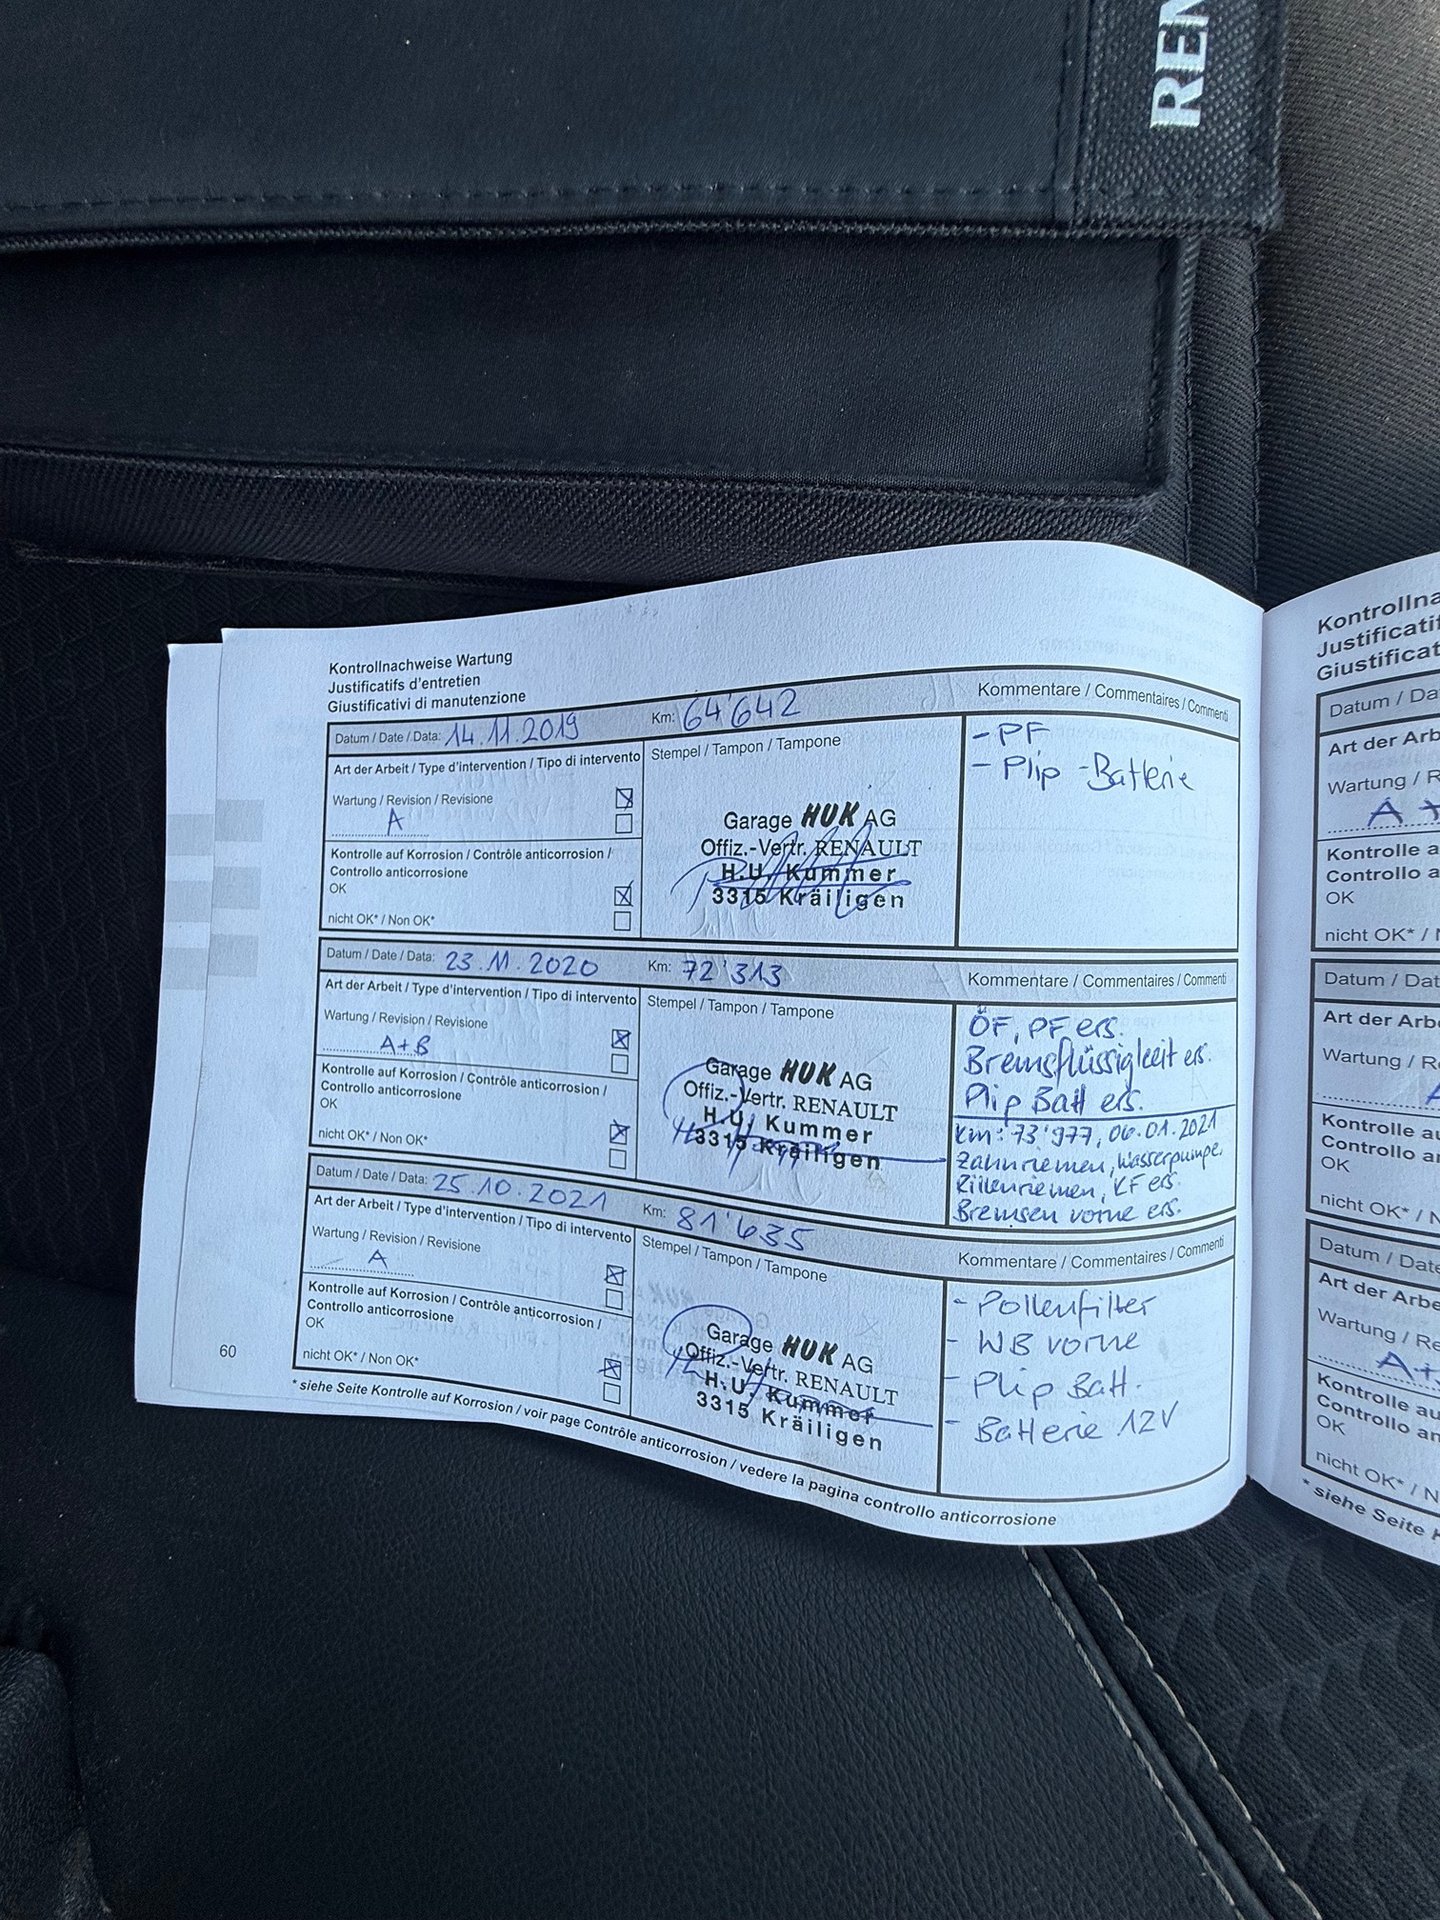 REN
Kontrollnachweise Wartung
Justificatifs d'entretien
Giustificativi di manutenzione
Datum / Date / Data: 14.11.2019 Km: 64'642 Kommentare / Commentaires / Commenti
Art der Arbeit / Type d'intervention / Tipo di intervento
Wartung / Revision / Revisione
A
Kontrolle auf Korrosion / Contrôle anticorrosion /
Controllo anticorrosione
OK
nicht OK* / Non OK*
Stempel / Tampon / Tampone
Garage HUK AG
Offiz.-Vertr. RENAULT
H.U. Kummer
3315 Kräiligen
- PF
- Plip -Batterie
Datum / Date / Data: 23.11.2020 Km: 72'313 Kommentare / Commentaires / Commenti
Art der Arbeit / Type d'intervention / Tipo di intervento
Wartung / Revision / Revisione
A+B
Kontrolle auf Korrosion / Contrôle anticorrosion /
Controllo anticorrosione
OK
nicht OK* / Non OK*
Stempel / Tampon / Tampone
Garage HUK AG
Offiz.-Vertr. RENAULT
H.U. Kummer
3315 Kräiligen
ÖF, PF ers.
Bremsflüssigkeit ers.
Plip Batt ers.
Km: 73'977, 06.01.2021
Zahnriemen, Wasserpumpe,
Rillenriemen, KF ers.
Bremsen vorne ers.
Datum / Date / Data: 25.10.2021 Km: 81'635 Kommentare / Commentaires / Commenti
Art der Arbeit / Type d'intervention / Tipo di intervento
Wartung / Revision / Revisione
A
Kontrolle auf Korrosion / Contrôle anticorrosion /
Controllo anticorrosione
OK
nicht OK* / Non OK*
Stempel / Tampon / Tampone
Garage HUK AG
Offiz.-Vertr. RENAULT
H.U. Kummer
3315 Kräiligen
- Pollenfilter
- WB vorne
- Plip Batt.
- Batterie 12V
* siehe Seite Kontrolle auf Korrosion / voir page Contrôle anticorrosion / vedere la pagina controllo anticorrosione
60
Kontrollna
Justificatif
Giustificat
Datum / Da
Art der Arb
Wartung / R
A +
Kontrolle a
Controllo a
OK
nicht OK* /
Datum / Dat
Art der Arbe
Wartung / Re
Kontrolle au
Controllo an
OK
nicht OK* / N
Datum / Date
Art der Arbe
Wartung / Re
A+
Kontrolle au
Controllo an
OK
nicht OK* / N
* siehe Seite K